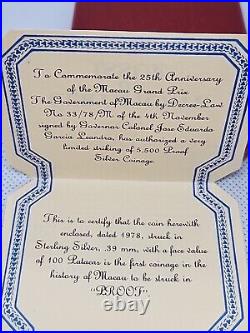 To Commemorate the 25th Anniversary
of the Macau Grand Prix
The Government of Macau by Decree-Law
No 33/78/M of the 4th November
signed by Governor Colonel Jose Eduardo
Garcia Leandra, has authorized a very
limited striking of 5.500 Proof
Silver Coinage
This is to certify that the coin herewith
enclosed, dated 1978, struck in
Sterling Silver, 39 mm, with a face value
of 100 Patacas is the first coinage in the
history of Macau to be struck in
"PROOF"